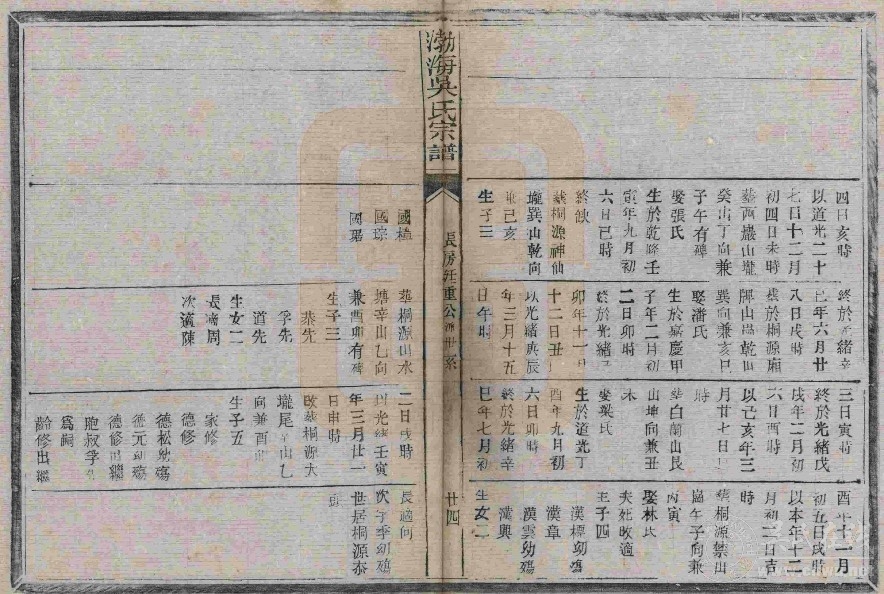 四日亥時
以道光二十
七日十二月
初四日未時
葬西巖山壠
癸山丁向兼
子午有碑
娶張氏
生於乾隆壬
寅年九月初
六日巳時
終缺
葬桐源神仙
壠巽山乾向
兼己亥
生子三
國
國琮
國琚
終於光緒辛
巳年六月廿
八日戌時
葬於桐源廟
脚山乾山
巽向兼亥巳
娶潘氏
生於嘉慶甲
子年二月初
二日卯時
終於光緒己
卯年十一月
十二日丑
以光緒庚辰
年三月十五
日午時
葬桐源山水
塘辛山乙向
兼酉卯有碑
生子三
恭先
孚先
道先
生女二
長適周
次適陳
三日寅時
終於光緒戊
戌年二月初
六日酉時
以己亥年三
月廿七日
時
葬白蘭山艮
山坤向兼丑
未
娶梁氏
生於道光丁
酉年九月初
六日卯時
終於光緒辛
巳年七月初
二日戌時
以光緒壬寅
年三月廿一
日申時
改葬桐源大
壠尾辛山乙
向兼酉卯
生子五
家修
德修
德松幼殤
德元幼殤
德修出繼
胞叔孚先
為嗣
齡修出繼
酉年十一月
初五日戌時
以本年十二
月初二日吉
時
葬桐源禁山
崗午子向兼
丙寅
娶林氏
夫死改適
生子四
漢標幼殤
漢章
漢雲幼殤
漢興
生女二
長適何
次字季幼殤
世居桐源泰
頭
渤海吳氏宗譜
長房廷重公派世系
廿四